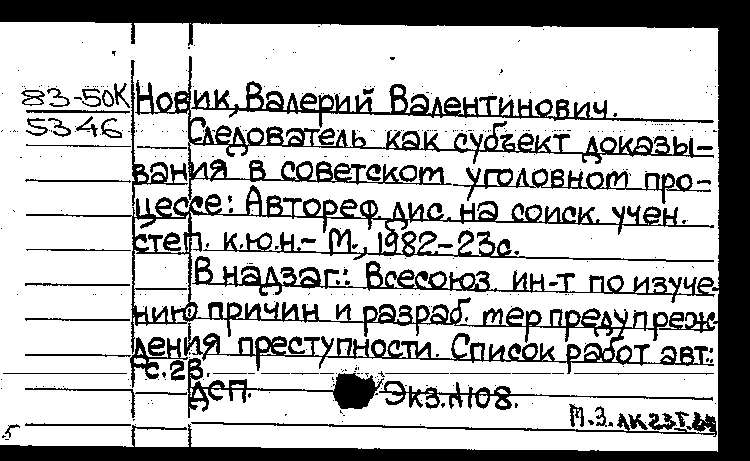 83-50К Новик, Валерий Валентинович.
5346 Следователь как субъект доказы-
вания в советском уголовном про-
цессе: Автореф. дис. на соиск. учен.
степ. к.ю.н.- М., 1982.-23с.
В надзаг.: Всесоюз. ин-т по изуче-
нию причин и разраб. мер предупреж-
дения преступности. Список работ авт.:
с.23.
ДСП. Экз.№108.
М.З.
5